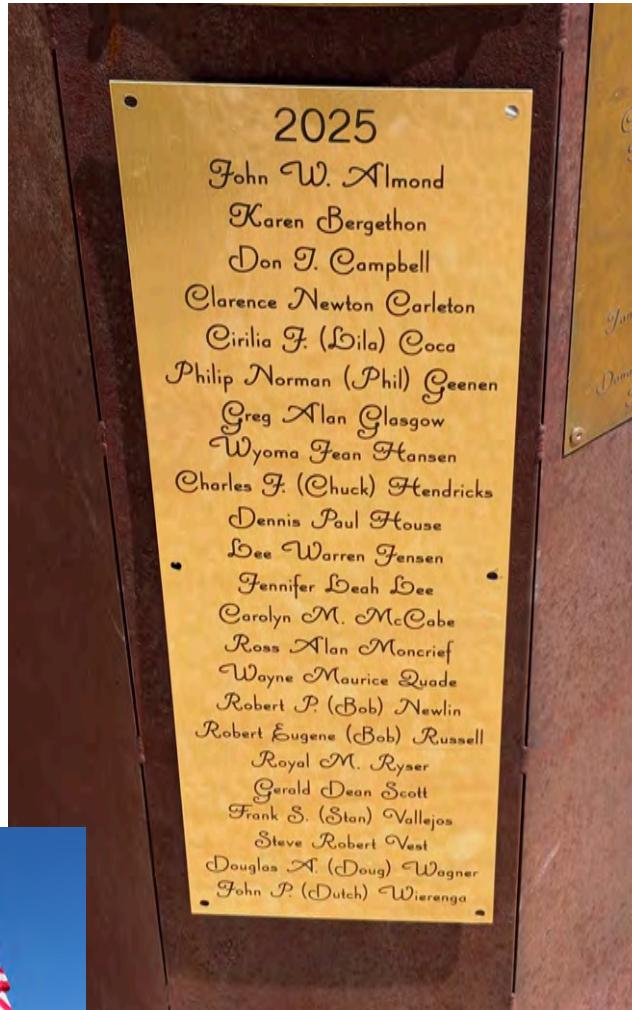 2025
John W. Almond
Karen Bergethon
Don Campbell
Clarence Newton Carleton
Cirilia J. (Lila) Coca
Philip Norman (Phil) Geenen
Greg Alan Glasgow
Wyoma Jean Hansen
Charles J. (Chuck) Hendricks
Dennis Paul House
Lee Warren Jensen
Jennifer Leah Lee
Carolyn M. McCabe
Ross Alan Moncrief
Wayne Maurice Quade
Robert P. (Bob) Newlin
Robert Eugene (Bob) Russell
Royal M. Ryser
Gerald Dean Scott
Frank S. (Stan) Vallejos
Steve Robert Vest
Douglas A. (Doug) Wagner
John P. (Dutch) Wierenga